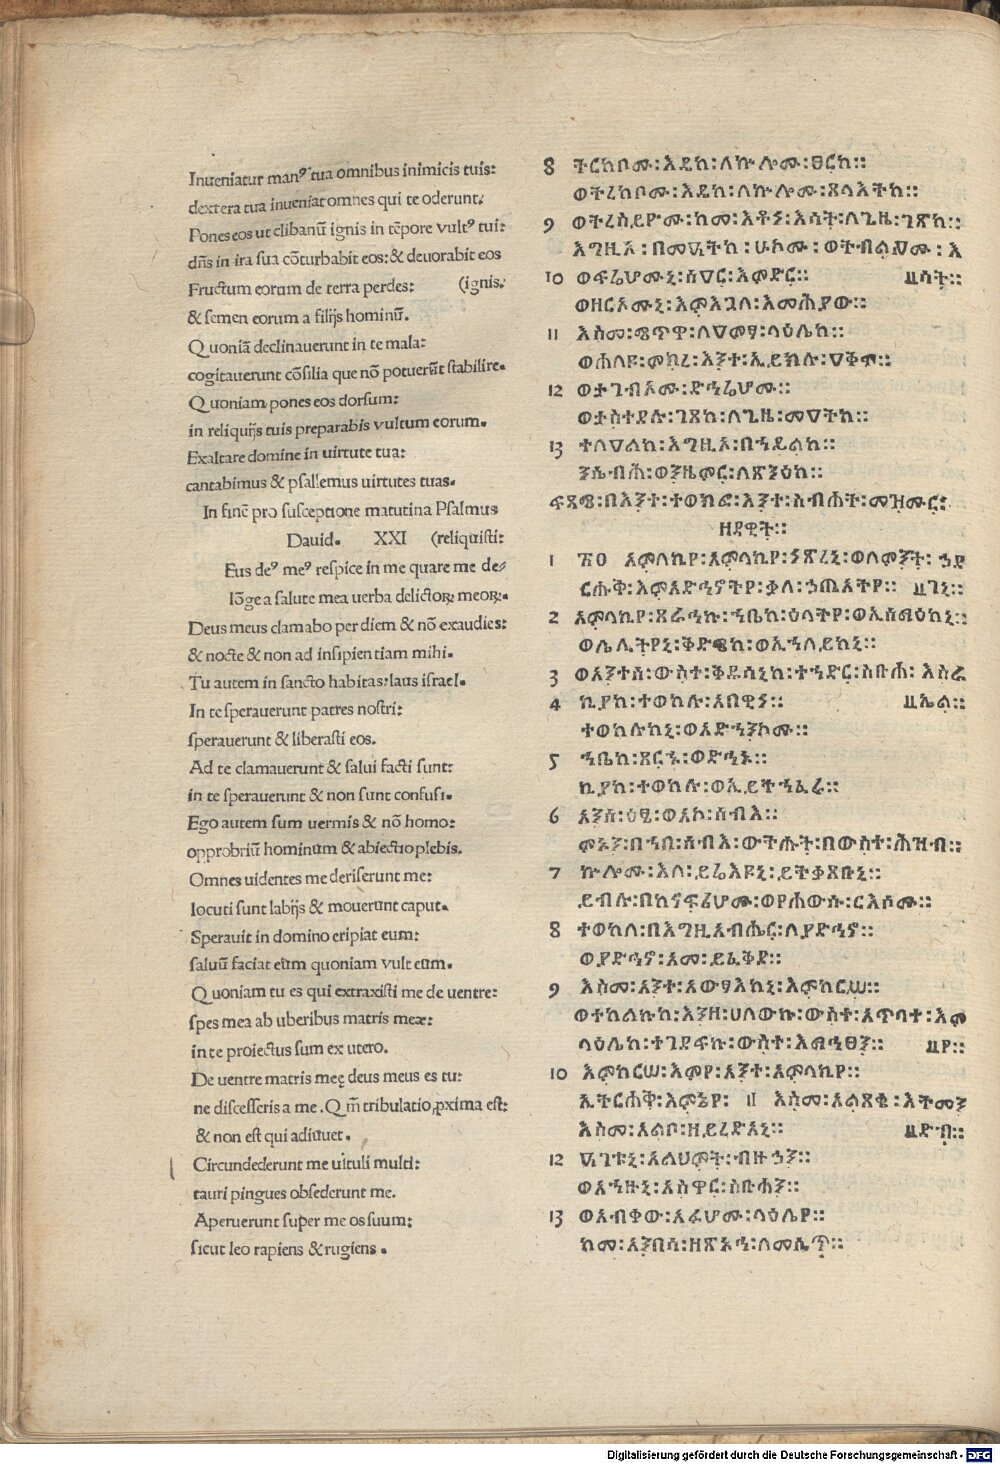 Inueniatur manꝰ tua omnibus inimicis tuis:
dextera tua inueniat omnes qui te oderunt.
Pones eos ut clibanū ignis in tēpore vultꝰ tui:
dn̄s in ira sua cōturbabit eos: & deuorabit eos
Fructum eorum de terra perdes: (ignis.
& semen eorum a filijs hominū.
Quoniā declinauerunt in te mala:
cogitauerunt cōsilia que nō potuerūt stabilire.
Quoniam pones eos dorsum:
in reliquijs tuis preparabis vultum eorum.
Exaltare domine in uirtute tua:
cantabimus & psallemus uirtutes tuas.
In finē pro susceptione matutina Psalmus
Dauid. XXI (reliquisti:
Eus deꝰ meꝰ respice in me quare me de
lōge a salute mea uerba delictoꝝ meoꝝ.
Deus meus clamabo per diem & nō exaudies:
& nocte & non ad insipientiam mihi.
Tu autem in sancto habitas: laus israel.
In te sperauerunt patres nostri:
sperauerunt & liberasti eos.
Ad te clamauerunt & salui facti sunt:
in te sperauerunt & non sunt confusi.
Ego autem sum uermis & nō homo:
opprobriū hominum & abiectio plebis.
Omnes uidentes me deriserunt me:
locuti sunt labijs & mouerunt caput.
Sperauit in domino eripiat eum:
saluū faciat eum quoniam vult eum.
Quoniam tu es qui extraxisti me de uentre:
spes mea ab uberibus matris meæ:
in te proiectus sum ex utero.
De uentre matris meę deus meus es tu:
ne discesseris a me. Qm̄ tribulatio ꝓxima est:
& non est qui adiuuet.
Circundederunt me uituli multi:
tauri pingues obsederunt me.
Aperuerunt super me os suum:
sicut leo rapiens & rugiens.
8 ትርከቦሙ፡እዴከ፡ለኵሎሙ፡ፀርከ።
ወትረከቦሙ፡እዴከ፡ለኵሎሙ፡ጸላእትከ።
9 ወትረስዮሙ፡ከመ፡እቶነ፡እሳት፡ለጊዜ፡ገጽከ።
እግዚአ፡በመዓትከ፡ሁኮሙ፡ወትብልዖሙ፡እ
10 ወፍሬሆሙኒ፡ እምድር። ሳት።
ወዘርኦሙኒ፡እምእጓለ፡እመሕያው።
11 እስመ፡ሜጥዋ፡ ላዕሌከ።
ወሐለዩ፡ምክረ፡እንተ፡ኢይክሉ፡
12 ወታገብኦሙ፡ድኅሬሆሙ።
ወታስተዴሉ፡ገጸከ፡ለጊዜ፡
13 ተለዐልከ፡እግዚኦ፡በኀይልከ።
ንሴብሕ፡ወንዜምር፡ለጽንዕከ።
ፍጻሜ፡በእንተ፡ተወክፎ፡እንተ፡ስብሐት፡መዝሙር፡
ዘዳዊት።
1 አምላኪየ፡አምላኪየ፡ነጽረኒ፡ወለምንት፡ኀደ
ርሑቅ፡እምአድኅኖትየ፡ቃለ፡ኀጢአትየ። ገኒ።
2 አምላኪየ፡ጸራኅኩ፡ኀቤከ፡ዕለትየ፡ወኢሰማዕከኒ።
ወሌሊትየኒ፡ ወኢኀለይከኒ።
3 ወአንተሰ፡ውስተ፡ቅዱሳኒከ፡ተኀድር፡ስቡሐ፡እስራ
4 ኪያከ፡ተወከሉ፡አበዊነ። ኤል።
ተወከሉከኒ፡ወአድኀንኮሙ።
5 ኀቤከ፡ጸርኁ፡ወድኅኑ።
ኪያከ፡ተወከሉ፡ወኢይትኀፈሩ።
6 አንሰ፡ዕፄ፡ወአኮ፡ሰብእ።
ምኑን፡በኀበ፡ሰብእ፡ውትሑት፡በውስተ፡ሕዝብ።
7 ኵሎሙ፡እለ፡ይሬእዩኒ፡ይትቃጸቡኒ።
ይብሉ፡በከናፍሪሆሙ፡ወየሐውሱ፡ርእሶሙ።
8 ተወከለ፡በእግዚአብሔር፡ለያድኅኖ።
ወያድኅኖ፡እመ፡ይፈቅዶ።
9 እስመ፡አንተ፡አውፃእከኒ፡እምከርሥ።
ወተከልኩከ፡እንዘ፡ሀለውኩ፡ውስተ፡አጥባተ፡እም
ላዕሌከ፡ተገደፍኩ፡ውስተ፡እማኅፀን። የ።
10 እምከርሠ፡እምየ፡አንተ፡አምላኪየ።
ኢትርሐቅ፡እምኔየ፡ 11 እስመ፡አልጸቂ፡እትመን
እስመ፡አልቦ፡ዘይረድአኒ። ድብ።
12 ዓገቱኒ፡አልህምት፡ብዙኃን።
ወአኀዙኒ፡አስዋር፡ስቡሐን።
13 ወአብቀው፡አፉሆሙ፡ላዕሌየ።
ከመ፡አንበሳ፡ዘጽኑዕ፡ለመሲጥ።
Digitalisierung gefördert durch die Deutsche Forschungsgemeinschaft - DFG